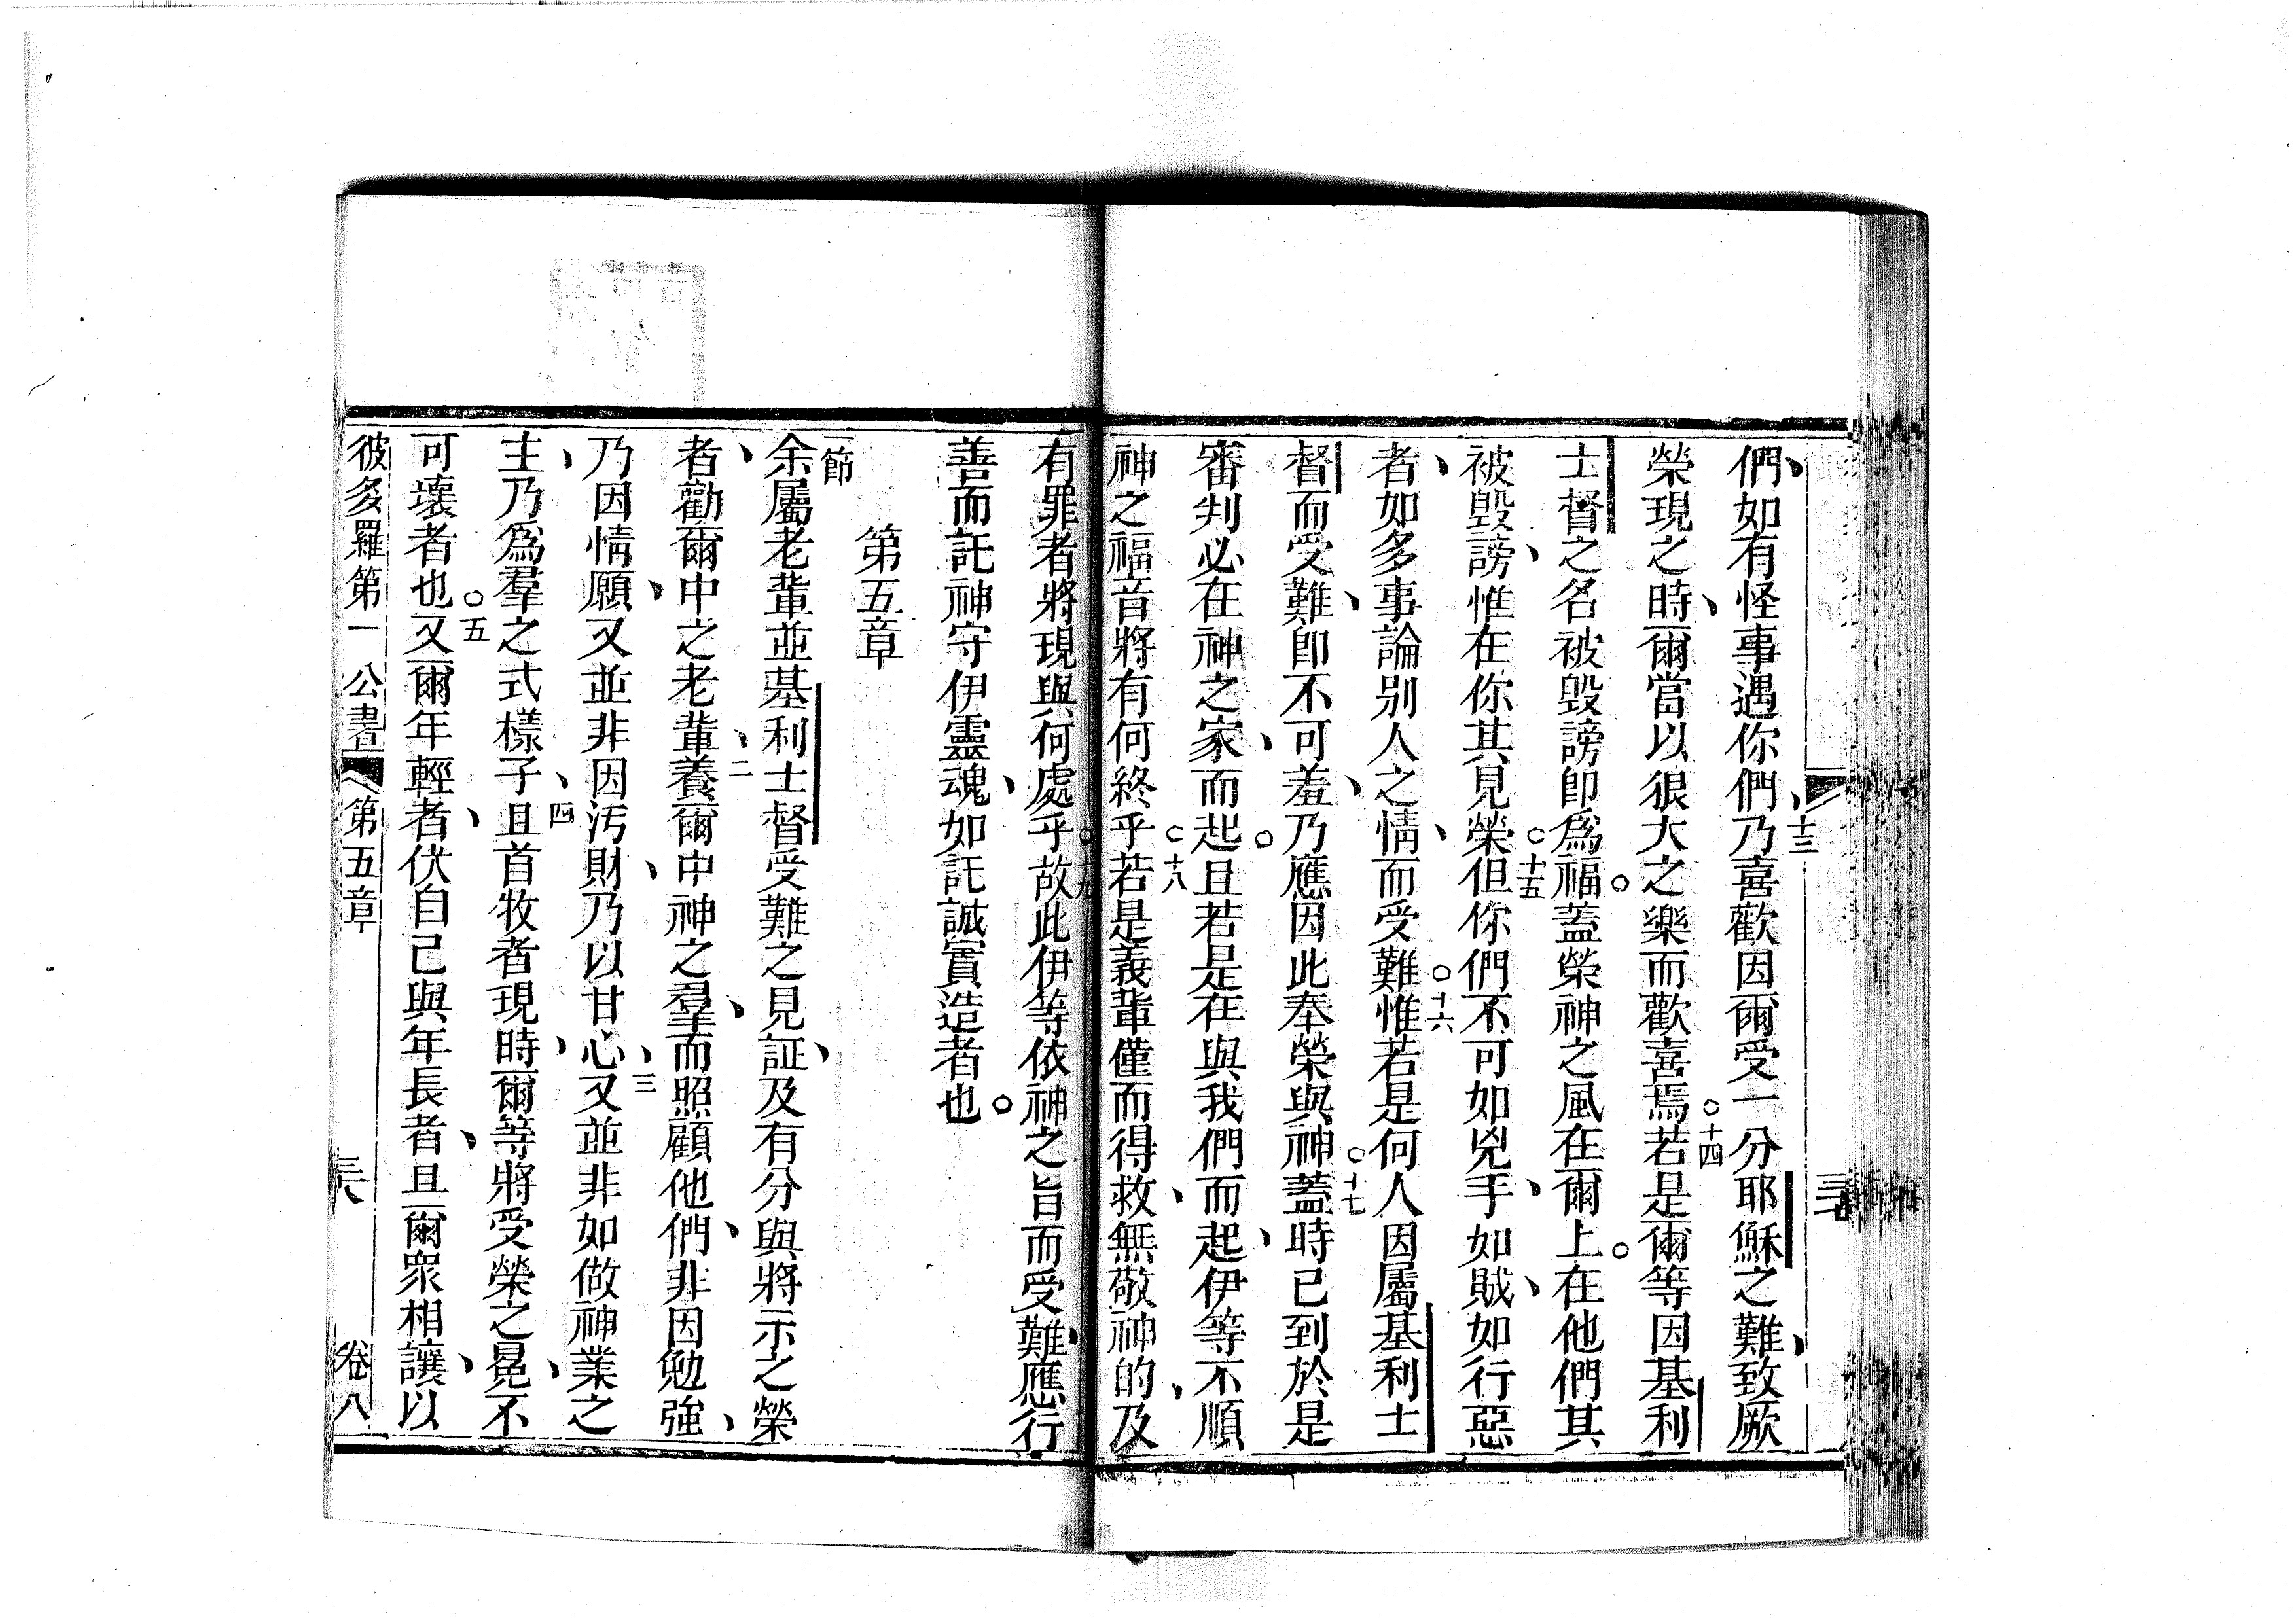 們、如有怪事遇你們、乃喜歡因爾受一分耶穌之難、致厥
十三
榮現之時、爾當以狠大之樂而歡喜焉○若是爾等因基利
十四
士督之名被毀謗卽爲福○蓋榮神之風在爾上○在他們其
被毀謗、惟在你其見榮○但你們不可如兇手、如賊、如行惡
十五
者、如多事論別人之情、而受難○惟若是何人因屬基利士
十六
督而受難、卽不可羞、乃應因此奉榮與神○蓋時已到於是
十七
審判必在神之家、而起○且若是在與我們而起、伊等不順
神之福音將有何終乎○若是義輩僅而得救、無敬神的、及
十八
有罪者將現與何處乎○故此伊等依神之旨而受難、應行
十九
善而託神守伊靈魂、如託誠實造者也○
第五章
一節
余屬老輩並基利士督受難之見証、及有分與將示之榮
者、勸爾中之老輩、養爾中神之羣、而照顧他們、非因勉強、
二
乃因情願、又並非因污財、乃以甘心、又並非如做神業之
三
主、乃爲羣之式樣子、且首牧者現時、爾等將受榮之冕、不
四
可壞者也○又爾年輕者、伏自己與年長者、且爾衆相讓、以
五
彼多羅第一公書 第五章 三八 卷八